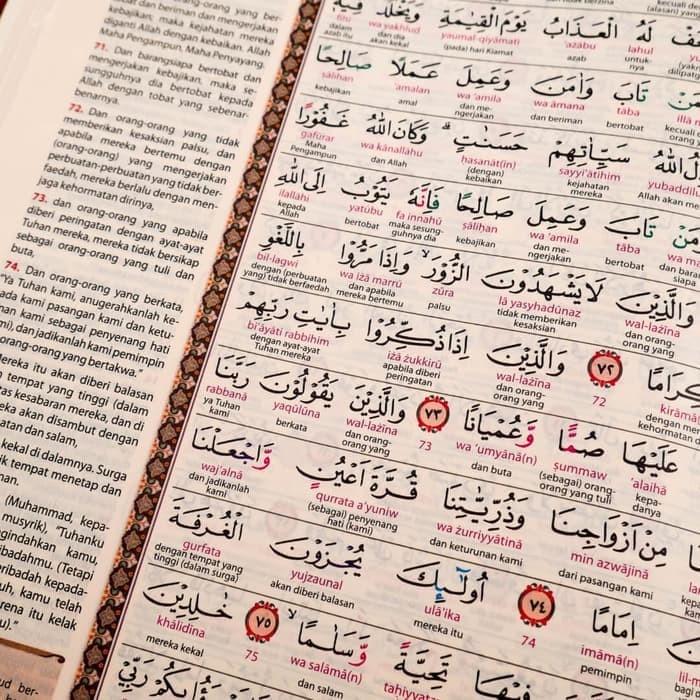 (orang-orang yang ber-
dat dan beriman dan mengerjakan
kebajikan, maka kejahatan mereka
diganti Allah dengan kebaikan. Allah
Maha Pengampun, Maha Penyayang.
71. Dan barangsiapa bertobat dan
mengerjakan kebajikan, maka se-
sungguhnya dia bertobat kepada
Allah dengan tobat yang sebenar-
benarnya.
72. Dan orang-orang yang tidak
memberikan kesaksian palsu, dan
apabila mereka bertemu dengan
(orang-orang) yang mengerjakan
perbuatan-perbuatan yang tidak ber-
faedah, mereka berlalu dengan men-
jaga kehormatan dirinya,
73. dan orang-orang yang apabila
diberi peringatan dengan ayat-ayat
Tuhan mereka, mereka tidak bersikap
sebagai orang-orang yang tuli dan
buta,
74. Dan orang-orang yang berkata,
"Ya Tuhan kami, anugerahkanlah ke-
ada kami pasangan kami dan ketu-
nan kami sebagai penyenang hati
mi), dan jadikanlah kami pemimpin
orang-orang yang bertakwa."
Mereka itu akan diberi balasan
tempat yang tinggi (dalam
tas kesabaran mereka, dan di
eka akan disambut dengan
atan dan salam,
kekal di dalamnya. Surga
ik tempat menetap dan
man.
(Muhammad, kepa-
musyrik), "Tuhanku
gindahkan kamu,
ibadahmu. (Tetapi
ribadah kepada-
uh, kamu telah
rena itu kelak
u)."
لَهُ الْعَذَابُ يَوْمَ الْقِيٰمَةِ وَيَخْلُدْ فِيْهٖ
lahul 'ażābu yaumal-qiyāmati wa yakhlud fīhī
untuk-nya azab (pada) hari Kiamat dan dia akan kekal dalam azab itu
تَابَ وَاٰمَنَ وَعَمِلَ عَمَلًا صَالِحًا
tāba wa āmana wa 'amila 'amalan ṣāliḥan
bertobat dan beriman dan me-ngerjakan amal kebajikan
اللّٰهُ سَيِّاٰتِهِمْ حَسَنٰتٍ ۗ وَكَانَ اللّٰهُ غَفُوْرًا
yubaddil sayyi'ātihim ḥasanāt(in) wa kānallāhu gafūrar
Allah akan me kejahatan mereka (dengan) kebaikan dan Allah Maha Pengampun
مَنْ تَابَ وَعَمِلَ صَالِحًا فَاِنَّهٗ يَتُوْبُ اِلَى اللّٰهِ
tāba wa 'amila ṣāliḥan fa innahū yatūbu ilallāhi
bertobat dan me-ngerjakan kebajikan maka sesung-guhnya dia bertobat kepada Allah
وَالَّذِيْنَ لَا يَشْهَدُوْنَ الزُّوْرَ ۙ وَاِذَا مَرُّوْا بِاللَّغْوِ
wal-lażīna lā yasyhadūnaz zūra wa iżā marrū bil-lagwi
dan orang-orang yang tidak memberikan kesaksian palsu dan apabila mereka bertemu dengan (perbuatan yang) tidak berfaedah
كِرَامًا ٧٢ وَالَّذِيْنَ اِذَا ذُكِّرُوْا بِاٰيٰتِ رَبِّهِمْ
72 wal-lażīna iżā żukkirū bi'āyāti rabbihim
dan orang-orang yang apabila diberi peringatan dengan ayat-ayat Tuhan mereka
عَلَيْهَا صُمًّا وَّعُمْيَانًا ٧٣ وَالَّذِيْنَ يَقُوْلُوْنَ رَبَّنَا
'alaihā ṣummaw wa 'umyānā(n) 73 wal-lażīna yaqūlūna rabbanā
kepa-danya (sebagai) orang-orang yang tuli dan buta dan orang-orang yang berkata ya Tuhan kami
مِنْ اَزْوَاجِنَا وَذُرِّيّٰتِنَا قُرَّةَ اَعْيُنٍ وَّاجْعَلْنَا
min azwājinā wa żurriyyātinā qurrata a'yuniw waj'alnā
dari pasangan kami dan keturunan kami (sebagai) penyenang hati (kami) dan jadikanlah kami
اِمَامًا ٧٤ اُولٰۤىِٕكَ يُجْزَوْنَ الْغُرْفَةَ
imāmā(n) 74 ulā'ika yujzaunal gurfata
pemimpin mereka itu akan diberi balasan dengan tempat yang tinggi (dalam surga)
فِيْهَا تَحِيَّةً وَّسَلٰمًا ۙ ٧٥ خٰلِدِيْنَ
taḥiyyataw wa salāmā(n) 75 khālidīna
dan salam mereka kekal